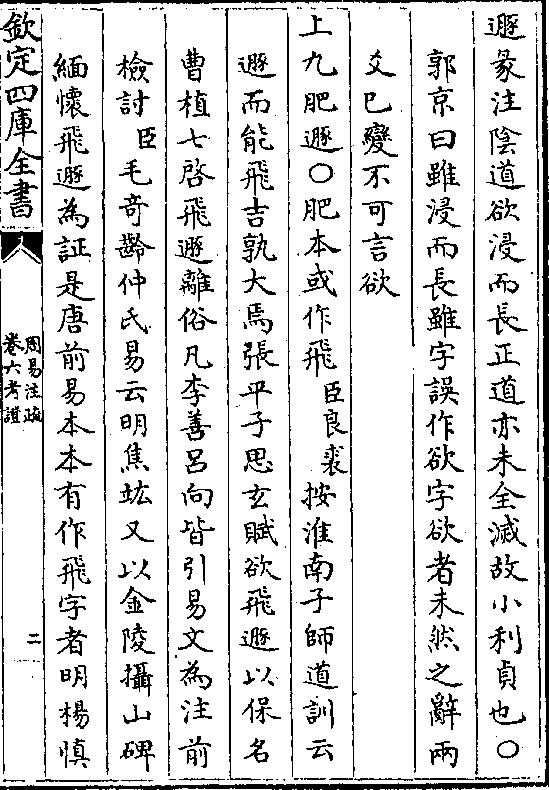 遯彖注陰道欲浸而長正道亦未全滅故小利貞也〇
郭京曰雖浸而長雖字誤作欲字欲者未然之辭兩
爻已變不可言欲
上九肥遯〇肥本或作飛臣良裘按淮南子師道訓云
遯而能飛吉孰大焉張平子思玄賦欲飛遯以保名
曹植七啓飛遯離俗凡李善呂向皆引易文為注前
檢討臣毛奇齡仲氏易云明焦竑又以金陵攝山碑
緬懷飛遯為証是唐前易本本有作飛字者明楊慎
欽定四庫全書
周易注疏
卷六考證
二